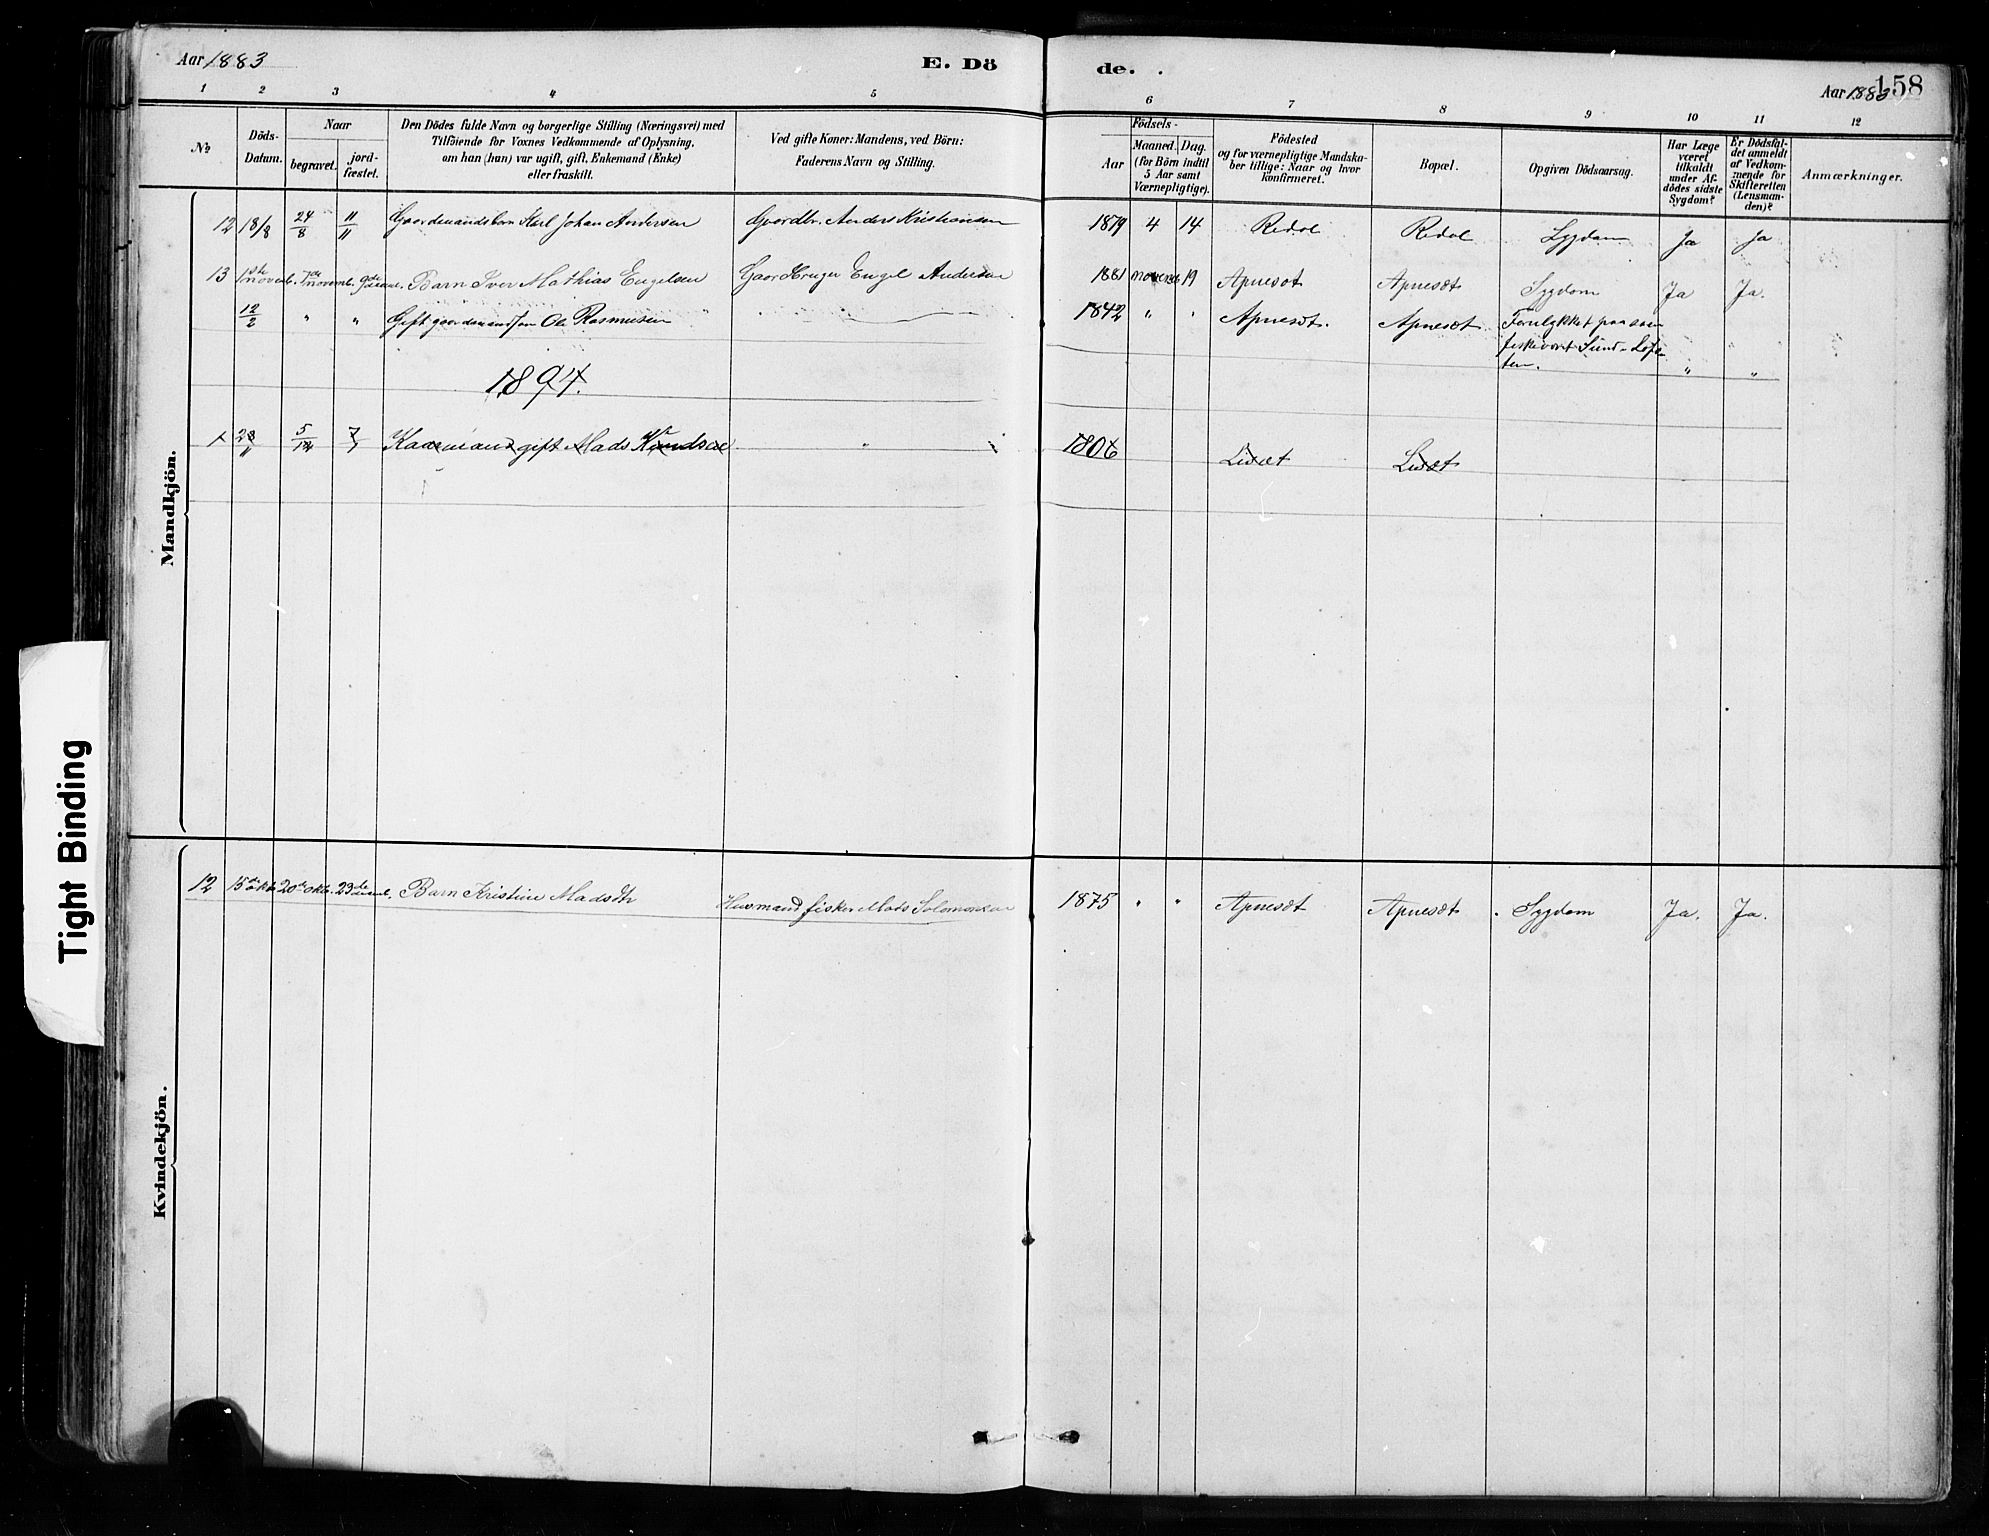 Aar 1883
E. Dö
de.
158
Aar 1883
1 2 3 4 5
6 7 8 9 10 11 12
No
Döds-
Datum.
Naar
begravet.
jord-
fæstet.
Den Dödes fulde Navn og borgerlige Stilling (Næringsvei) med
Tilföiende for Voxnes Vedkommende af Oplysning,
om han (hun) var ugift, gift, Enkemand (Enke)
eller fraskilt.
Ved gifte Koner: Mandens, ved Börn:
Faderens Navn og Stilling.
Födsels-
Aar
Maaned. Dag.
(for Börn indtil
5 Aar samt
Værnepligtige).
Födested
og for værnepligtige Mandska-
ber tillige: Naar og hvor
konfirmeret.
Bopæl.
Opgiven Dödsaarsag.
Har Læge
været
tilkaldt
under Af-
dödes sidste
Sygdom?
Er Dödsfal-
det anmeldt
af Vedkom-
mende for
Skifteretten
(Lensman-
den)?
Anmærkninger.
Mandkjön.
12 18/8 24/8 11/11 Gaardmandsbarn Karl Johan Andersen Gaardbr. Anders Kristiansen 1879 4 14 Redal Redal Sygdom Ja Ja
13 1ste novemb. 7de novemb. 9de Barn Iver Mathias Engelsen Gaardbruger Engel Andersen 1881 19 Apnesæt Apnesæt Sygdom Ja Ja.
12/2 " " Gift gaardmand Ole Rasmusen 1842 " " Apnesæt. Apnesæt Forulykket paa
fiskeværet Sund - Lofo-
ten. " "
1894.
1 5/12 gift Mads Knudsen " 1806
Kvindekjön.
12 15de okt. 20de oktb. 23de Barn Kristine Madsdtr Husmand fisker Mads Solomonsen 1875 " " Apnesæt Apnesæt Sygdom Ja. Ja.
Tight Binding